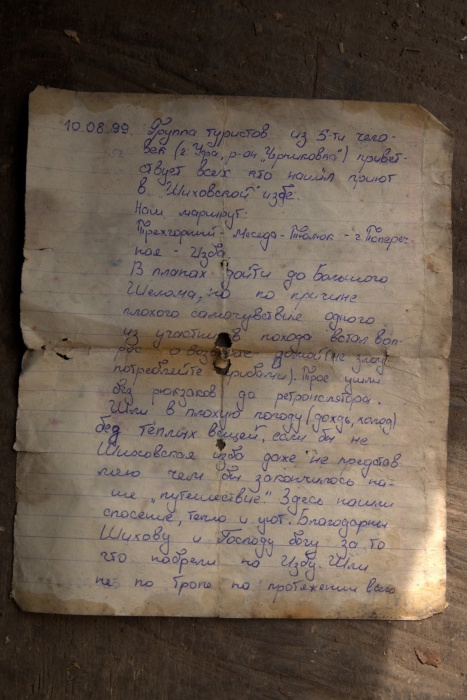 10.08.99. Группа туристов из 5-ти чело-
век (г. Уфа, р-он "Черниковка") привет-
ствует всех кто нашёл приют
в "Шиховской" избе.
Наш маршрут:
Трехгорный - Меседа - Тюлюк - г. Попереч-
ная - Изба.
В планах дойти до Большого
Шелома, но по причине
плохого самочувствие одного
из участни в похода встал воп-
рос о домой (не злоу
потребляйте грибами). Трое ушли
без рюкзаков до ретранслятора.
Шли в плохую погоду (дождь, холод)
без тёплых вещей, если бы не
Шиховская изба даже не представ
ляю чем бы закончилось на-
ше "путешествие". Здесь нашли
спасение, тепло и уют. Благодарны
Шихову и Господу богу за то
что набрели на Избу. Шли
не по тропе на протяжении всего